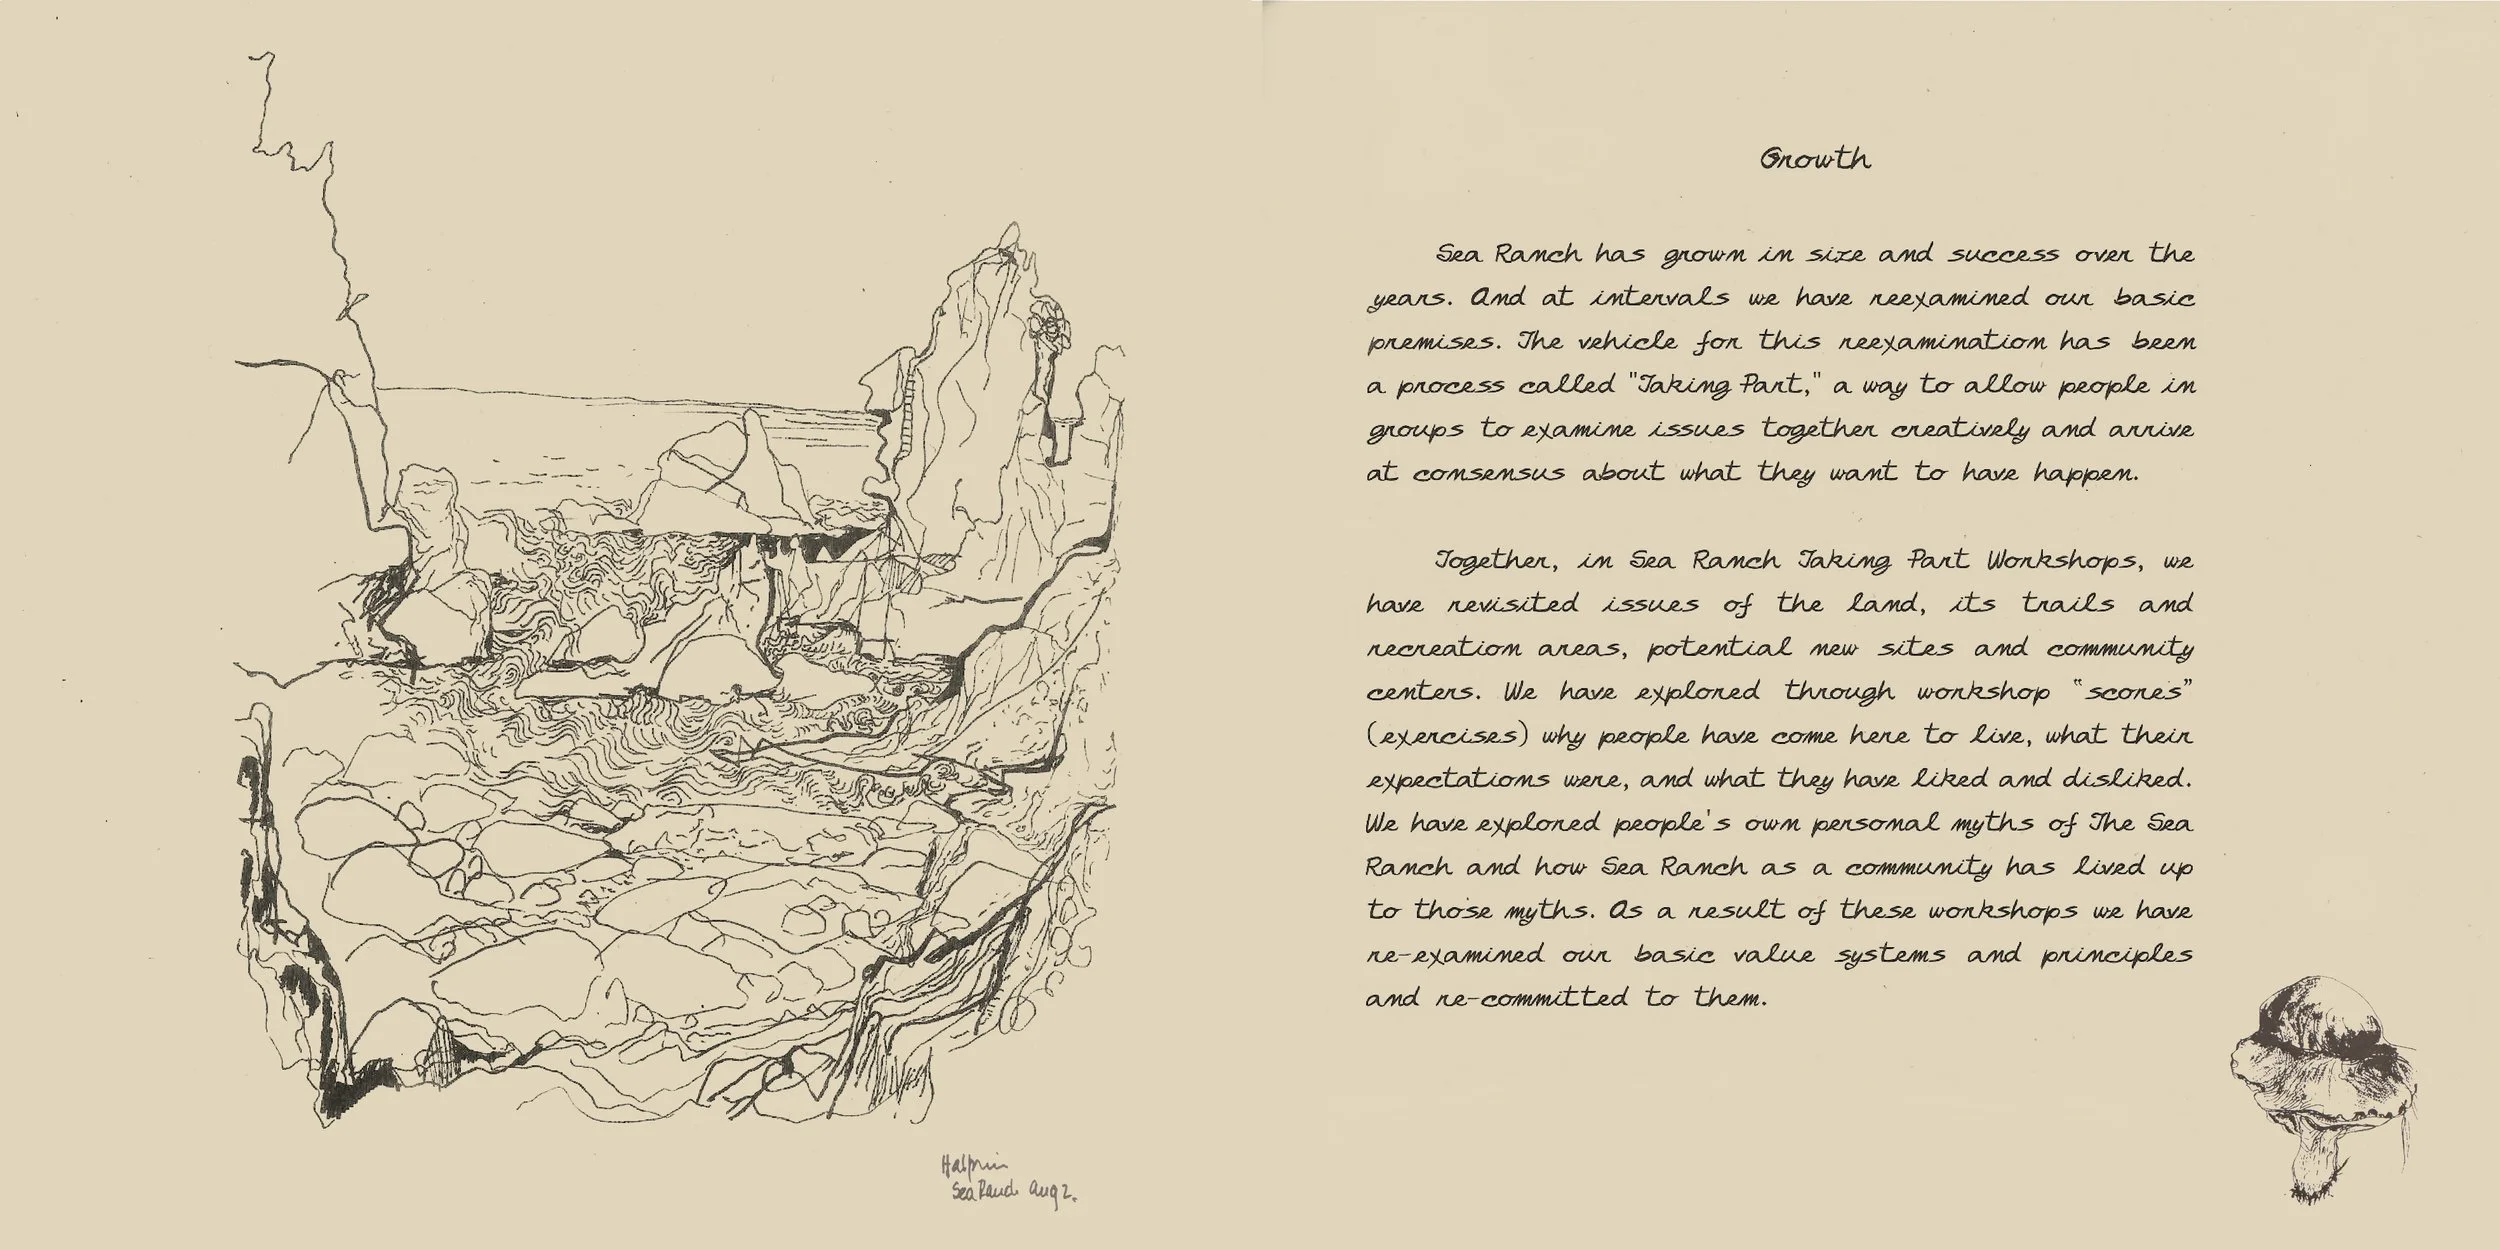 Halprin
Sea Ranch Aug 2.
Growth
Sea Ranch has grown in size and success over the
years. And at intervals we have reexamined our basic
premises. The vehicle for this reexamination has been
a process called "Taking Part," a way to allow people in
groups to examine issues together creatively and arrive
at consensus about what they want to have happen.
Together, in Sea Ranch Taking Part Workshops, we
have revisited issues of the land, its trails and
recreation areas, potential new sites and community
centers. We have explored through workshop “scores”
(exercises) why people have come here to live, what their
expectations were, and what they have liked and disliked.
We have explored people's own personal myths of The Sea
Ranch and how Sea Ranch as a community has lived up
to those myths. As a result of these workshops we have
re-examined our basic value systems and principles
and re-committed to them.